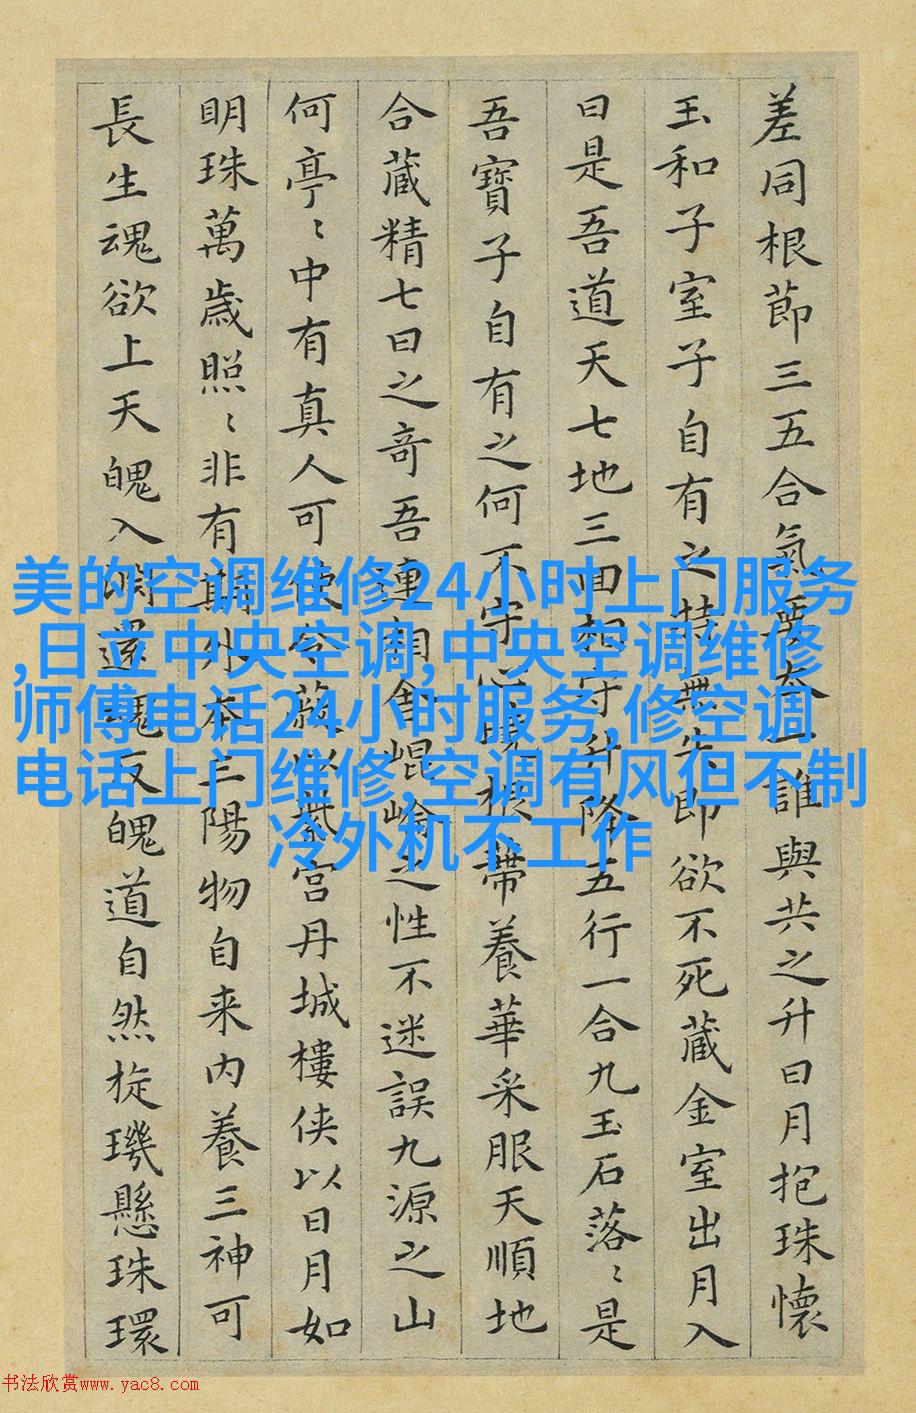 差同根節三五合氣要本一誰與共之升日月抱珠懷
玉和子室子自有之持無失即欲不死藏金室出月入
日是吾道天七地三回相守升降五行一合九玉石落〻是
吾寶子自有之何不守心曉根蒂養華采服天順地
合藏精七日之奇吾連相舍崐崘之性不迷誤九源之山
何亭〻中有真人可使令蔽以紫宮丹城樓俠以日月如
明珠萬歲照〻非有期外本三陽物自来内養三神可
長生魂欲上天魄入淵還魂反魄道自然旋璣懸珠環
美的空调维修24小时上门服务
,日立中央空调,中央空调维修
师傅电话24小时服务,修空调
电话上门维修,空调有风但不制
冷外机不工作
书法欣赏www.yac8.com